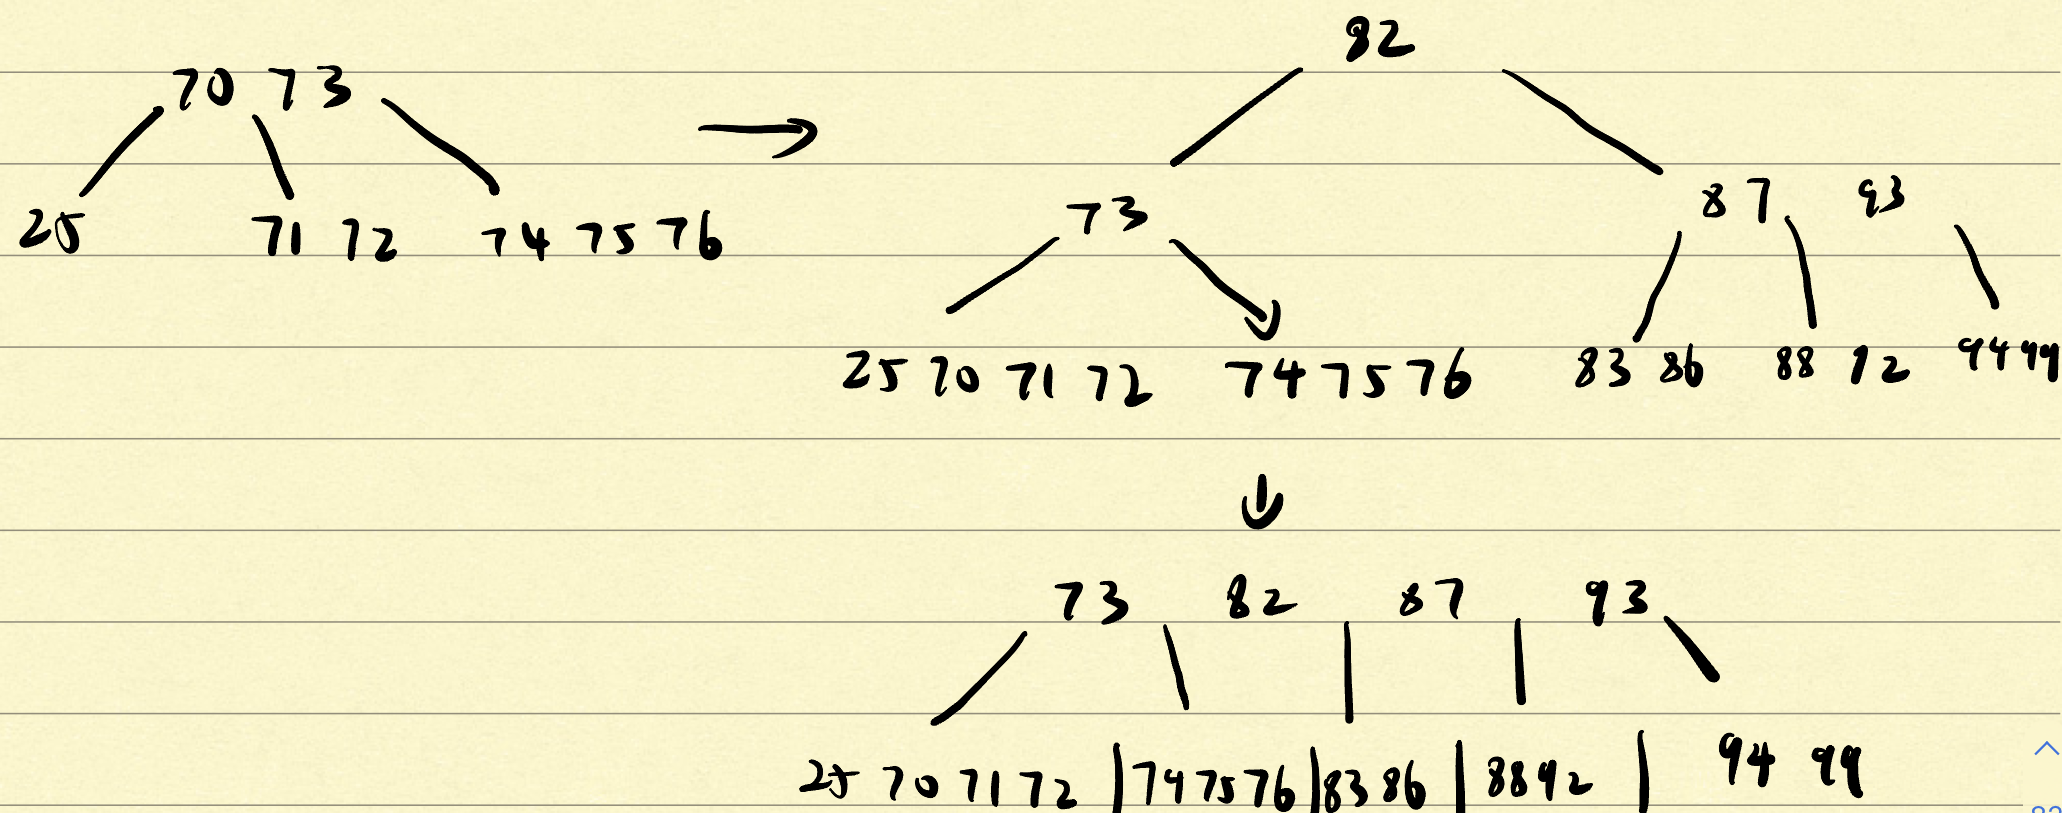 82
70 73
73
87 93
25 71 72 74 75 76
25 70 71 72 74 75 76 83 86 88 92 94 99
73 82 87 93
25 70 71 72 | 74 75 76 | 83 86 | 88 92 | 94 99